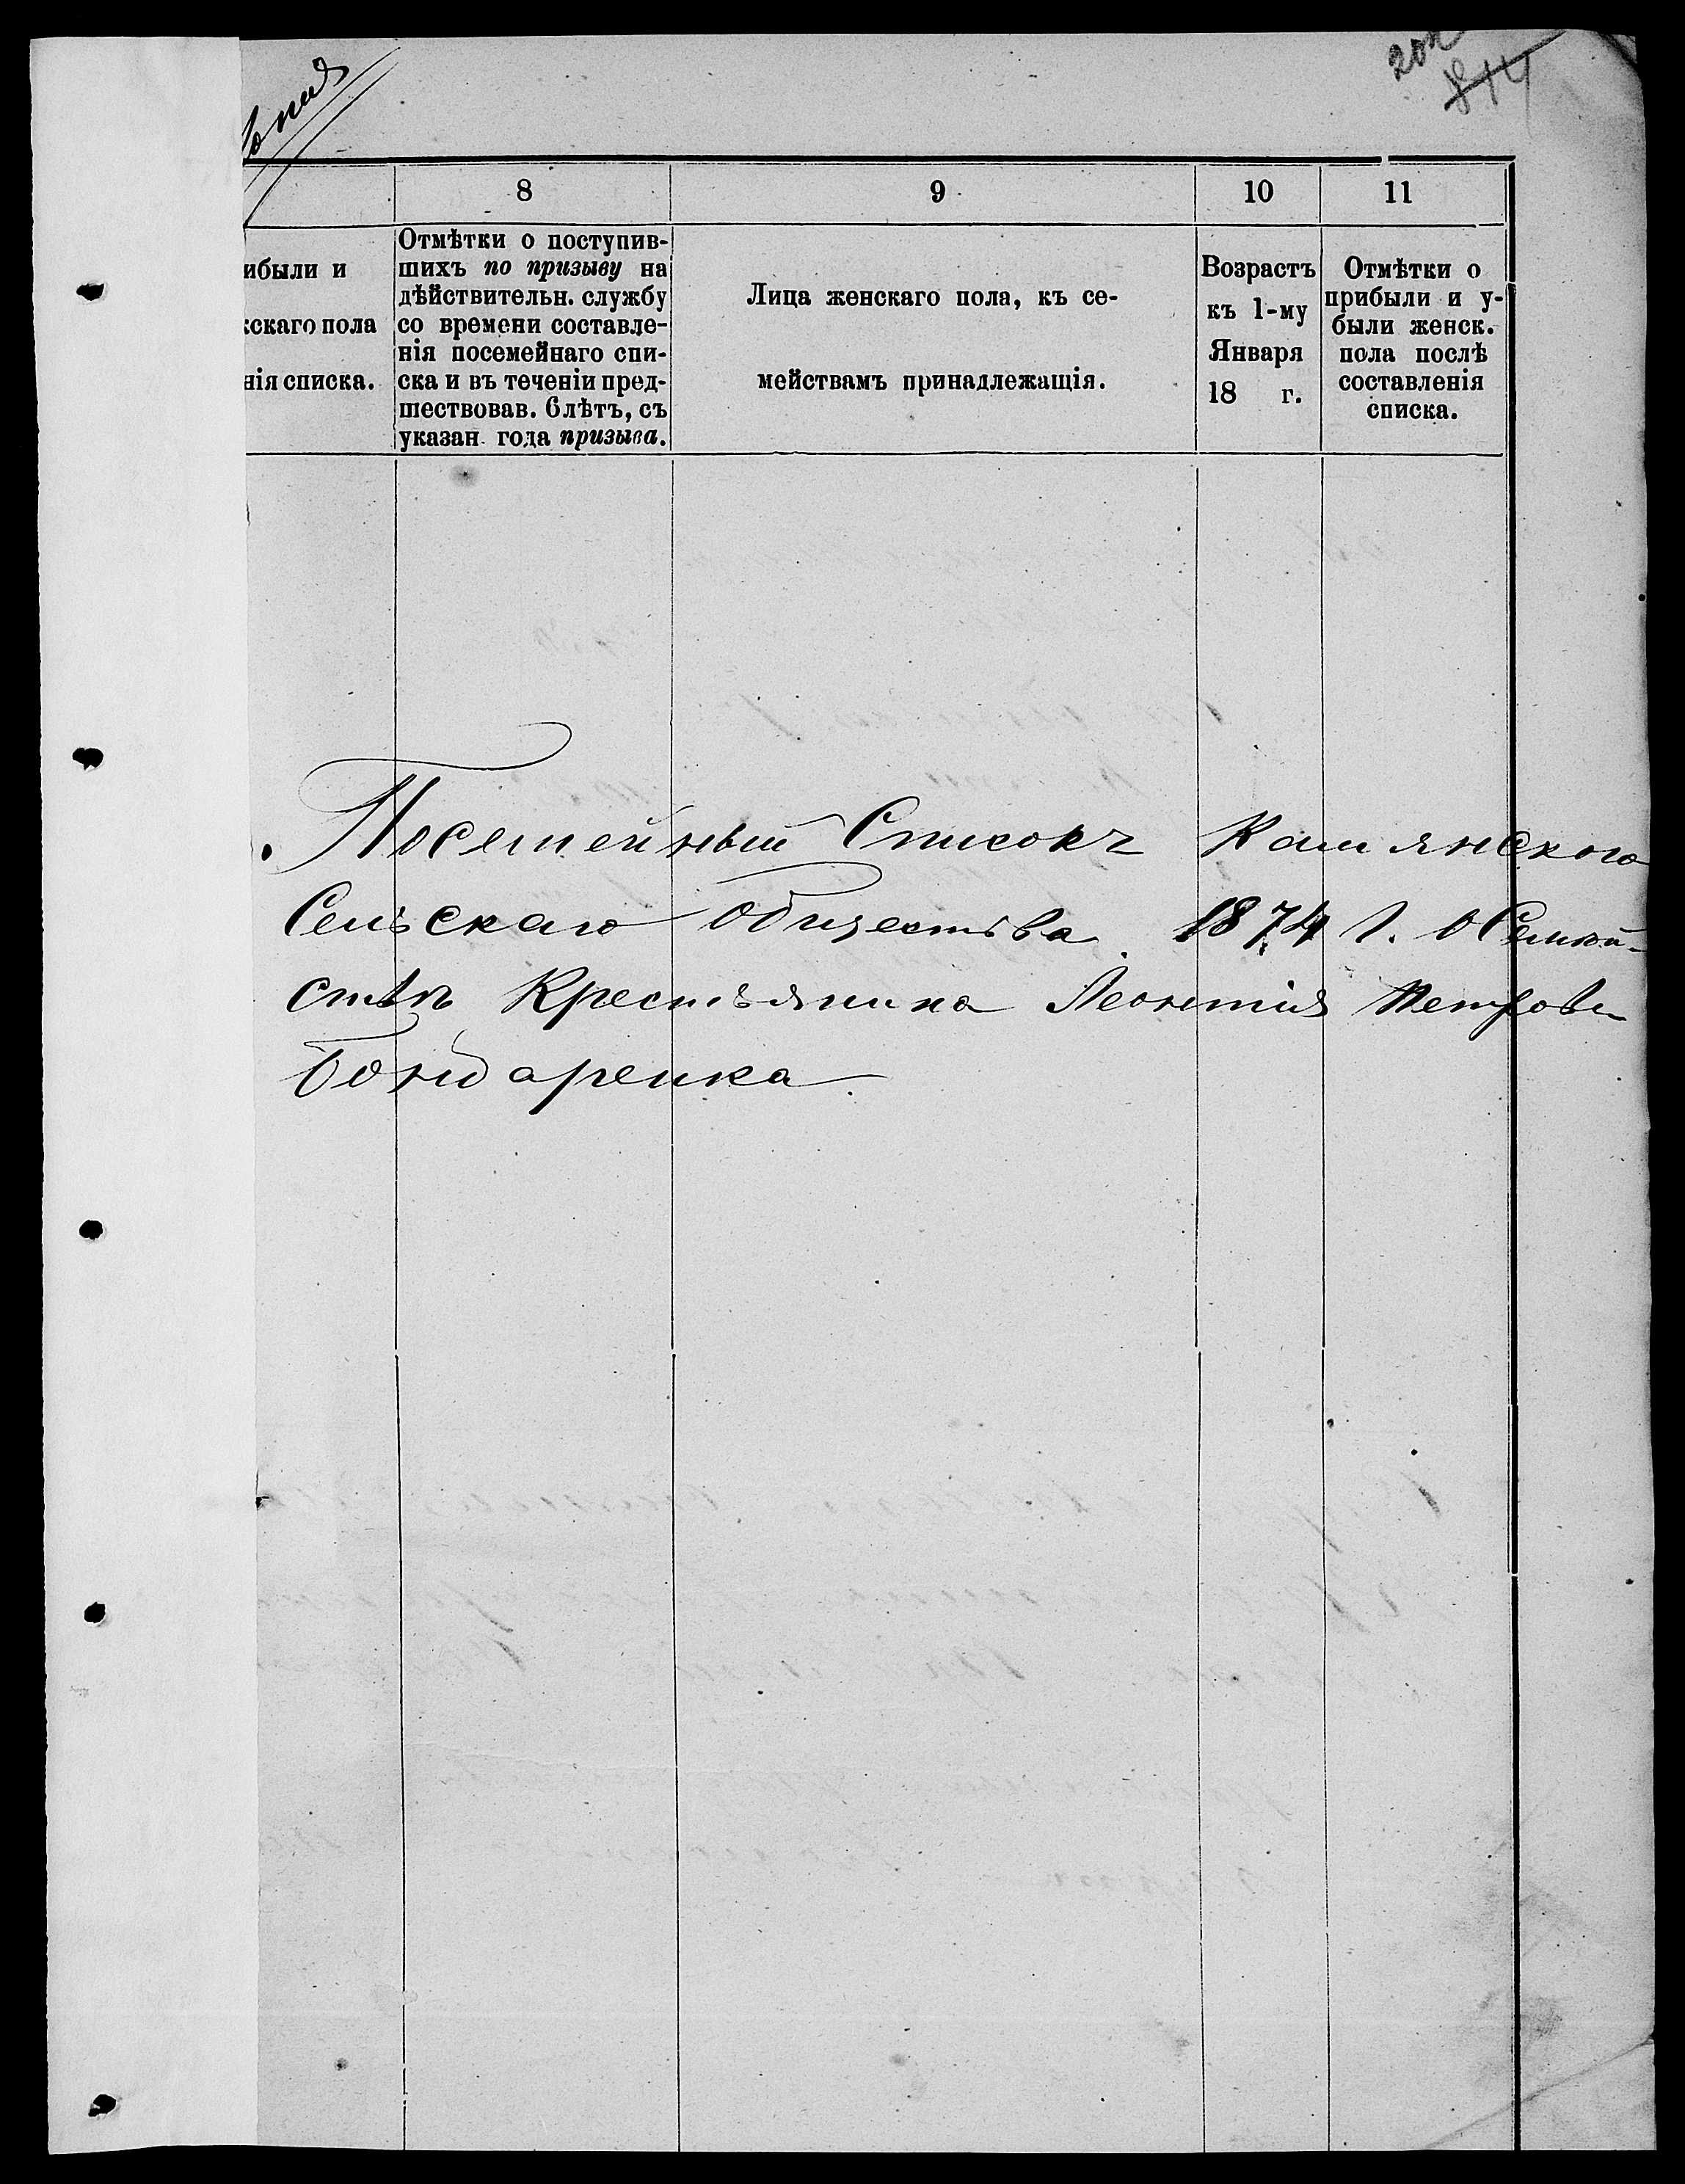 8 9 10 11
ибыли и
скаго пола
нія списка.
Отмѣтки о поступив-
шихъ по призыву на
дѣйствительн. службу
со времени составле-
нія посемейнаго спи-
ска и въ теченіи пред-
шествовав. 6 лѣтъ, съ
указан. года призыва.
Лица женскаго пола, къ се-
мействамъ принадлежащія.
Возрастъ
къ 1-му
Января
18 г.
Отмѣтки о
прибыли и у-
были женск.
пола послѣ
составленія
списка.
Посемейный Списокъ Камянского
Сельскаго Общества 1874 г. О Семей-
ствѣ Крестьянина Леонтія Петрова
Бондаренка